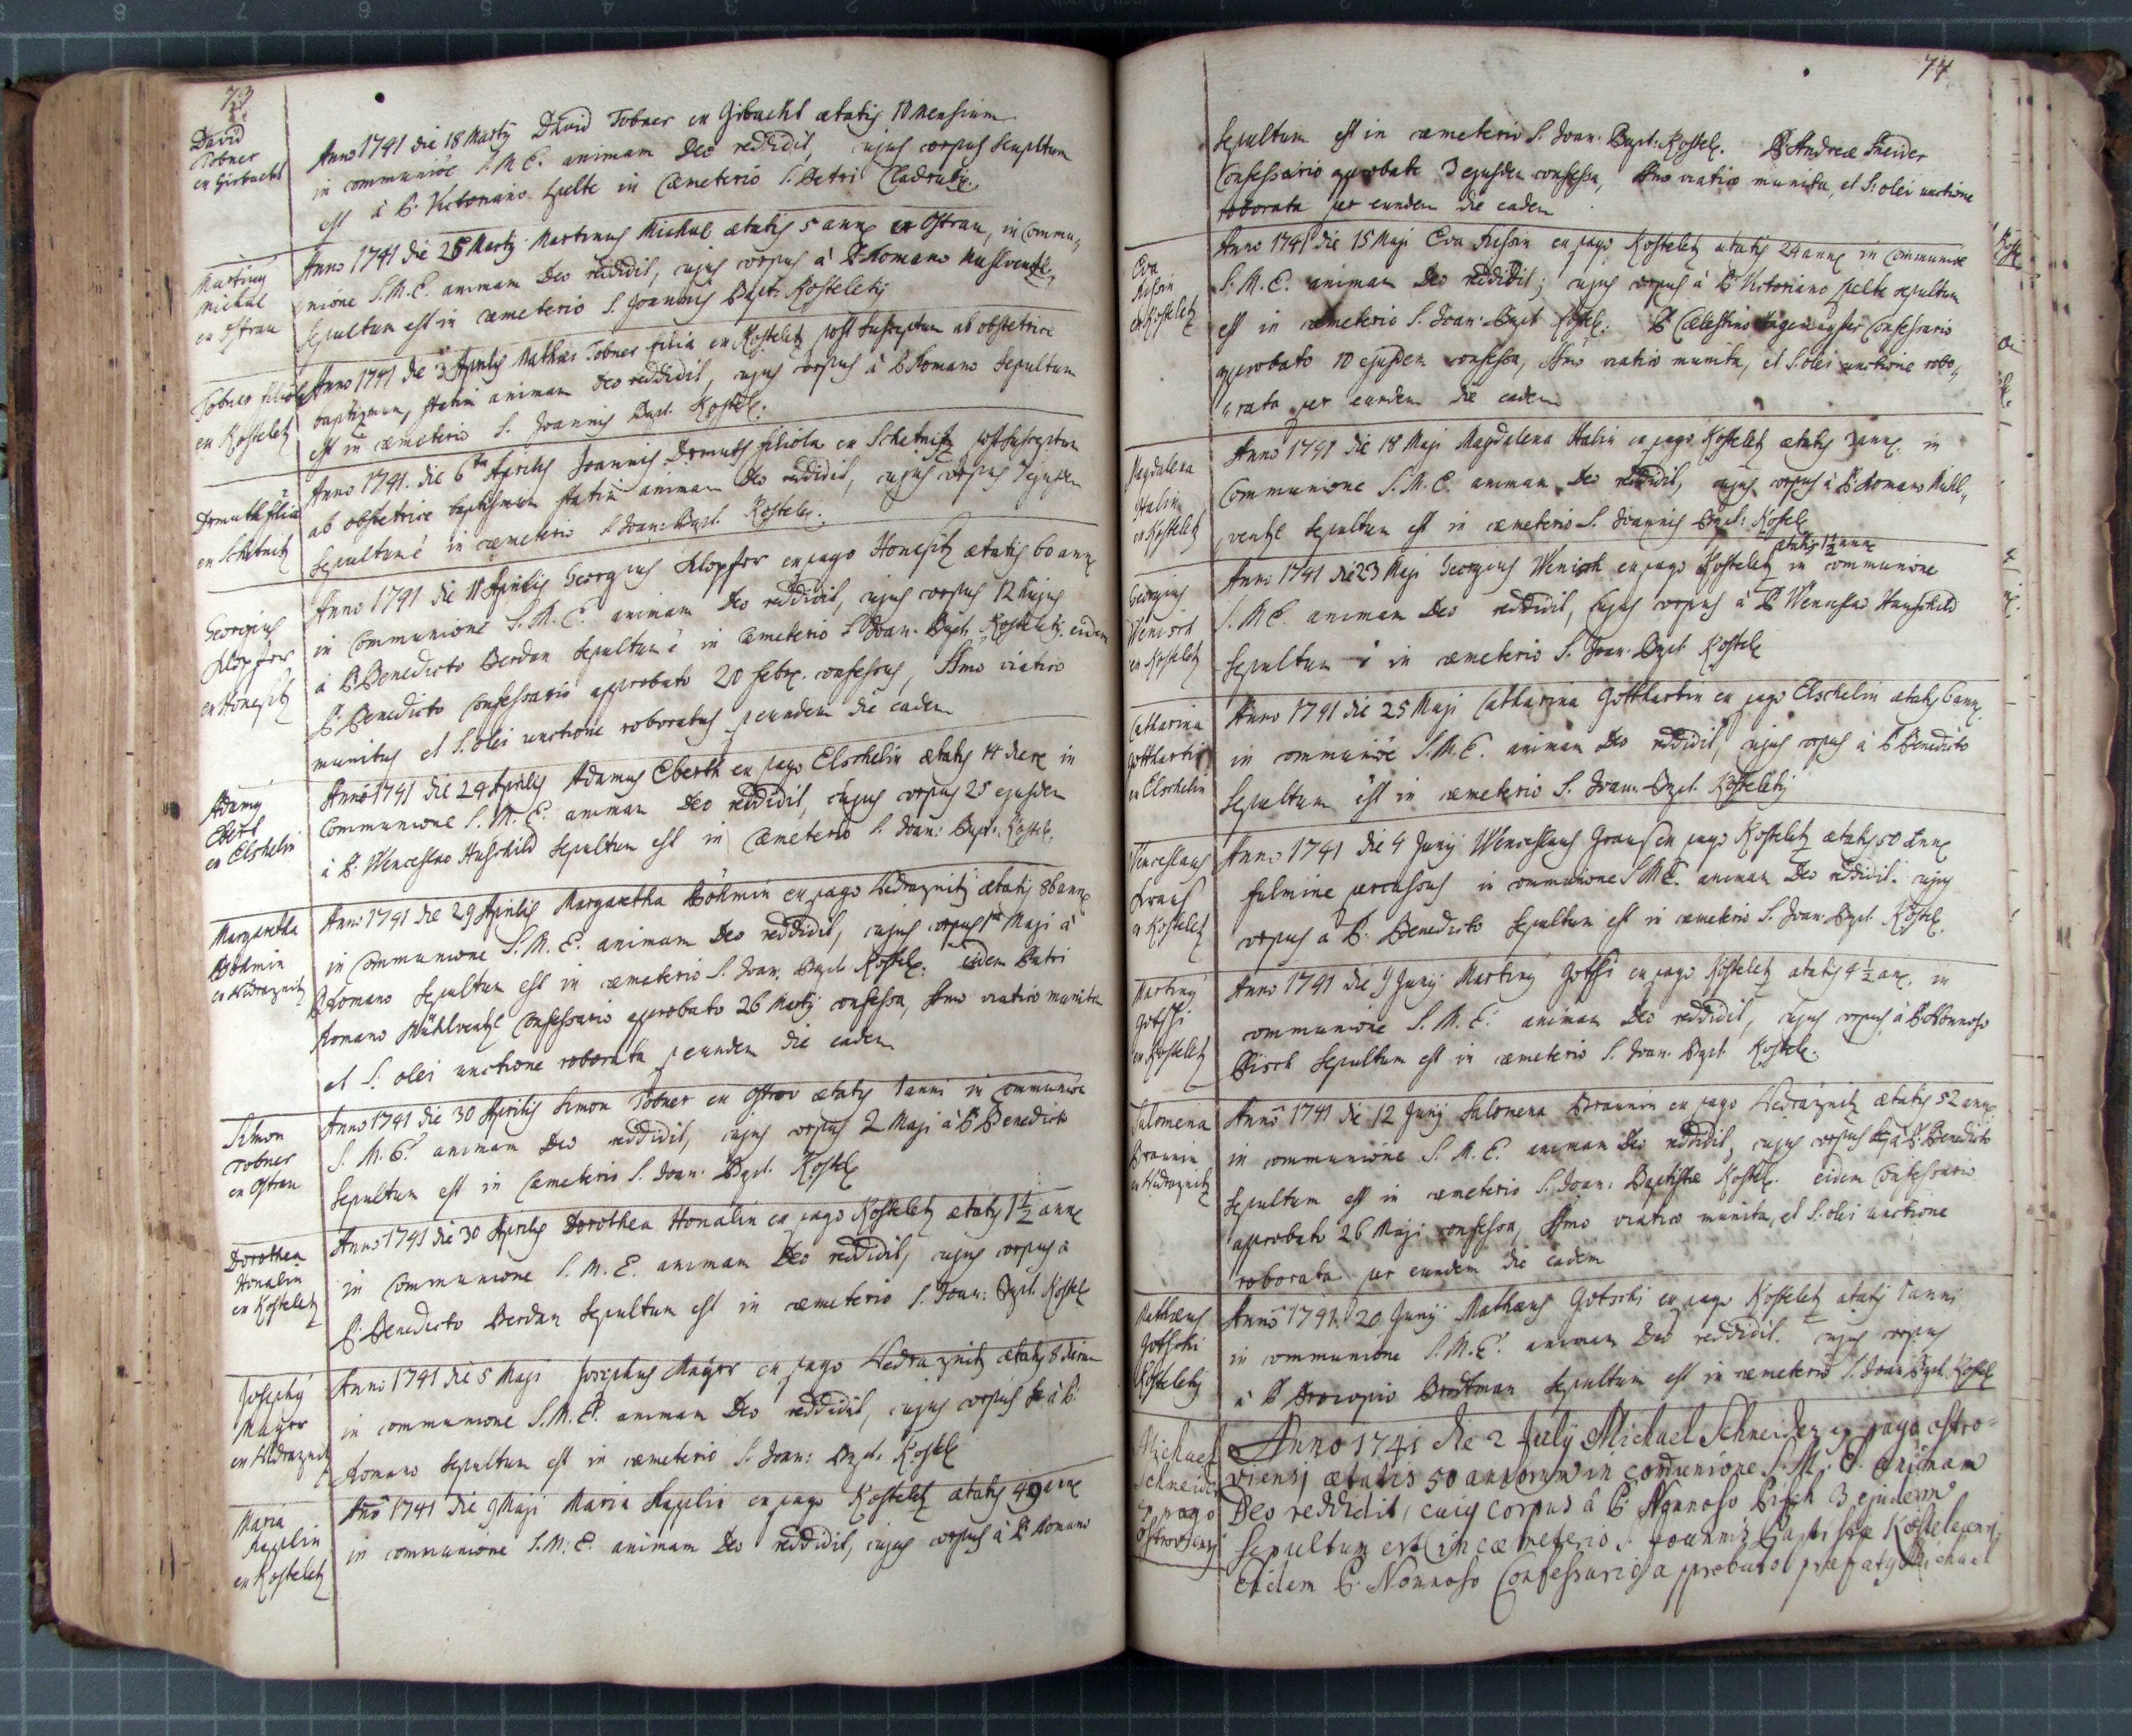 73
David
Tobner
ex Gibacht
Anno 1741 die 18 Martÿ David Tobner ex Gibacht ætatis 10 mensium
in communiōe S. M. E. animam Deo reddidit, cujus corpus sepultum
est à P. Victoriano Spelte in Cæmeterio S. Petri Cladrubÿ
Martinÿ
Michal
ex Ostrau
Anno 1741 die 25 Martÿ Martinus Michal ætatis 5 annx ex Ostrau, in Commu„
nione S. M. E. animam Deo reddidit, cujus corpus à P. Romano
Sepultum est in cæmeterio S. Joannis Bapt: Kosteletÿ
Tobner filiola
ex Kosteletz
Anno 1741 die 3 Aprilis Mathæi Tobner filia ex Kosteletz post susceptum ab obstetrice
baptismum, statim animam Deo reddidit, cujus corpus à P. Romano Sepultum
est in cæmeterio S. Joannis Bapt. Kostelx.
Drmuth filia
ex Schetnitz
Anno 1741. die 6ta Aprilis Joannis Drmuth filiola ex Schetnitz post susceptum
ab obstetrice baptismum statim animam Deo reddidit, cujus corpus 7 ejusdem
Sepultum ē in cæmeterio S. Joan: Bapt. Kostelx.
Georgius
Klopfer
ex Honesitz
Anno 1741 die 11 Aprilis Georgius Klopfer ex pago Honesitz ætatis 60 annx
in Communione S. M. E. animam Deo reddidit, cujus corpus 12 hujus
à P. Benedicto Berdan sepultum ē in Cæmeterio S. Joan. Bapt. Kosteletÿ. eidem
P. Benedicto Confessario approbato 20 Febrx. confessus, Ssmo viatico
munitus et S. olei unctione roboratus p eundem die eadem
Adamÿ
Ebert
ex Elschelin
Anno 1741 die 24 Aprilis Adamus Eberth ex pago Elschelin ætatis 14 dierx in
Communione S. M. E. animam Deo reddidit, cujus corpus 25 ejusdem
à P. Wenceslao Hauschild sepultum est in Cæmeterio S. Joan: Bapt: Kostelx.
Margaretha
Böhmin
ex Wedraznitz
Anno 1741 die 29 Aprilis Margaretha Böhmin ex pago Wedraznitz ætatis 86 annx
in Communione S. M. E. animam Deo reddidit, cujus corpus 1ma Maji à
P. Romano sepultum est in cæmeterio S. Joan. Bapt. Kostelx. eidem Patri
Romano Mühlventzl Confessario approbato 26 Martÿ confessa, Ssmo viatico munita
et S. olei unctione roborata p eundem die eadem
Simon
Tobner
ex Ostrau
Anno 1741 die 30 Aprilis Simon Tobner ex Ostrov ætatis 1 anni in communiōe
S. M. E. animam Deo reddidit, cujus corpus 2 Maji à P. Benedicto
Sepultum est in Cæmeterio S. Joan. Bapt. Kostelx
Dorothea
Honalin
ex Kosteletz
Anno 1741 die 30 Aprilis Dorothea Honalin ex pago Kosteletz ætatis 1 1/2 annx
in Communione S. M. E. animam Deo reddidit, cujus corpus à
P. Benedicto Berdan Sepultum est in cæmeterio S. Joan: Bapt. Kostelx
Josephÿ
Mayer
ex Wedraznitz
Anno 1741 die 5 Maji Josephus Mayer ex pago Wedraznitz ætatis 8 dierum
in communione S. M. E. animam Deo reddidit, cujus corpus à P.
Romano sepultum est in cæmeterio S. Joan: Bapt. Kostelx
Maria
Kapplin
ex Kosteletz
Anno 1741 die 9 Maji Maria Kapplin ex pago Kosteletz ætatis 49 annx
in communione S. M. E. animam Deo reddidit, cujus corpus à P. Romano
74
Sepultum est in cæmeterio S. Joan: Bapt: Kostelx. P. Andreæ Sneider
Confessario approbato 3 ejusdem confessa, Ssmo viatico munita, et S: olei unctione
roborata per eundem die eadem
Eva
ex Kosteletz
Anno 1741 die 15 Maji Eva ex pago Kosteletz ætatis 24 annx in communiōe
S. M. E. animam Deo reddidit; cujus corpus à P. Victoriano Spelte sepultum
est in cæmeterio S. Joan. Bapt. Kostelx. P. Cælestino Confessario
approbato 10 ejusdem confessa, Ssmo viatico munita, et S. olei unctione robo„
rata per eundem die eadem
Magdalena
Halin
ex Kosteletz
Anno 1741 die 18 Maji Magdalena Halin ex pago Kosteletz ætatis 3 annx. in
Communione S. M. E. animam Deo reddidit, cujus corpus à P. Romano Mühl„
ventzl sepultum est in cæmeterio S. Joannis Bapt: Kostelx
Georgius
Wenisch
ex Kosteletz
ætatis 1 1/2 annx
Anno 1741 die 23 Maji Georgius Wenisch ex pago Kosteletz in communione
S. M. E. animam Deo reddidit, cujus corpus à P. Wenceslao Hauschild
Sepultum ē in cæmeterio S. Joan. Bapt. Kostelx
Catharina
Gotthartin
ex Elschelin
Anno 1741 die 25 Maji Catharina Gotthartin ex pago Elschelin ætatis 6 annx.
in communiōe S. M. E. animam Deo reddidit, cujus corpus à P. Benedicto
Sepultum est in cæmeterio S. Joan. Bapt. Kosteletÿ
Wenceslaus
Kraus
ex Kosteletz
Anno 1741 die 4 Junÿ Wenceslaus Graus ex pago Kosteletz ætatis 50 annx
fulmine percussus in communione S. M. E. animam Deo reddidit. cujus
corpus à P. Benedicto Sepultum est in cæmeterio S. Joan. Bapt. Kostelx.
Martinÿ
Gotshi
ex Kosteletz
Anno 1741 die 9 Junÿ Martinÿ Gotshi ex pago Kosteletz ætatis 4 1/2 anx. in
communione S. M. E. animam Deo reddidit, cujus corpus à P. Nonnoso
Pisch sepultum est in cæmeterio S. Joan. Bapt. Kostelx.
Salomena
Braunin
ex Wedraznitz
Anno 1741 die 12 Junÿ Salomena Braunin ex pago Wedraznitz ætatis 52 annx.
in communione S. M. E. animam Deo reddidit, cujus corpus à P. Benedicto
Sepultum est in cæmeterio S. Joan: Baptistæ Kostelx. eidem Confessario
approbato 26 Maji confessa, Ssmo viatico munita, et S. olei unctione
roborata per eundem die eadem
Mathæus
Gotschi
Kosteletÿ
Anno 1741. 20 Junÿ Mathæus Gotschi ex pago Kosteletz ætatis 1 anni
in communione S. M. E. animam Deo reddidit. cujus corpus
à P. Procopio Brodtman sepultum est in cæmeterio S. Joan Bapt. Kostelx
Michael
Schneider
e pago
Ostroviensi
Anno 1741 die 2 July Michael Schneider ex pago ostro=
viensi ætatis 50 annorum in comunione S. M. E. animam
Deo reddidit, cuiq corpus à P. Nonnoso Pisch 3 ejusdem
Sepultum est in cæmeterio S. Joannis Baptistæ Kostelecensi,
Eidem P. Nonnoso Confessario approbato præfatÿ Michael